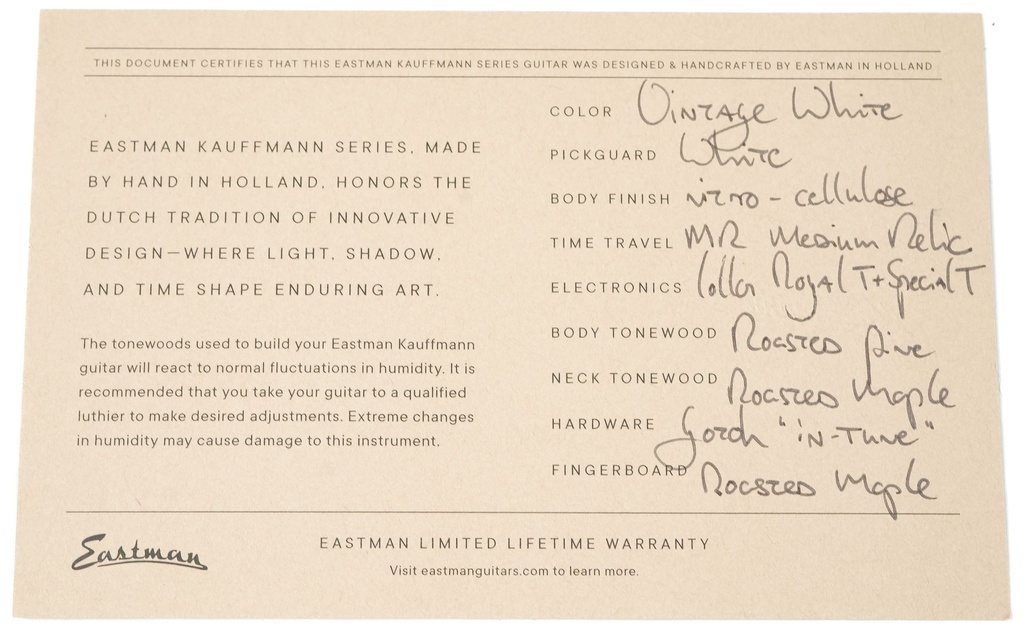 THIS DOCUMENT CERTIFIES THAT THIS EASTMAN KAUFFMANN SERIES GUITAR WAS DESIGNED & HANDCRAFTED BY EASTMAN IN HOLLAND
EASTMAN KAUFFMANN SERIES, MADE
BY HAND IN HOLLAND, HONORS THE
DUTCH TRADITION OF INNOVATIVE
DESIGN—WHERE LIGHT, SHADOW,
AND TIME SHAPE ENDURING ART.
The tonewoods used to build your Eastman Kauffmann
guitar will react to normal fluctuations in humidity. It is
recommended that you take your guitar to a qualified
luthier to make desired adjustments. Extreme changes
in humidity may cause damage to this instrument.
COLOR Vintage White
PICKGUARD White
BODY FINISH nitro - cellulose
TIME TRAVEL MR Medium Relic
ELECTRONICS lollar Royal T + Special T
BODY TONEWOOD Roasted Pine
NECK TONEWOOD Roasted Maple
HARDWARE Gotoh "iN-Tune"
FINGERBOARD Roasted Maple
Eastman
EASTMAN LIMITED LIFETIME WARRANTY
Visit eastmanguitars.com to learn more.